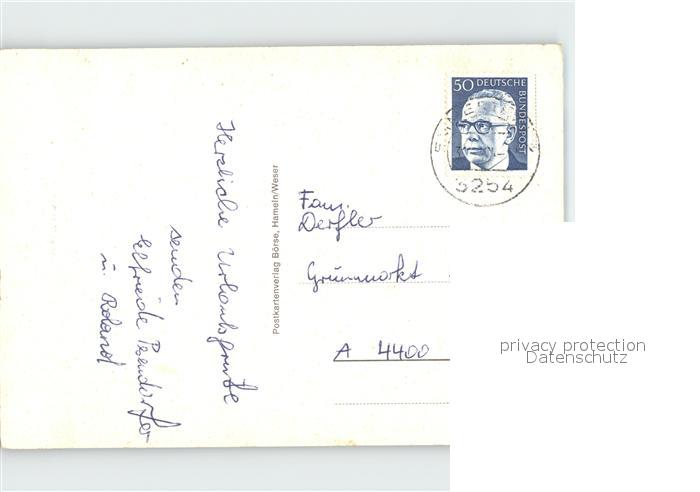 Herzliche Urlaubsgrüße
senden
Elfriede
u. Roland
Postkartenverlag Börse, Hameln/Weser
50 DEUTSCHE
BUNDESPOST
3254
Fam.
Derfler
Grünmarkt
A 4400
privacy protection
Datenschutz